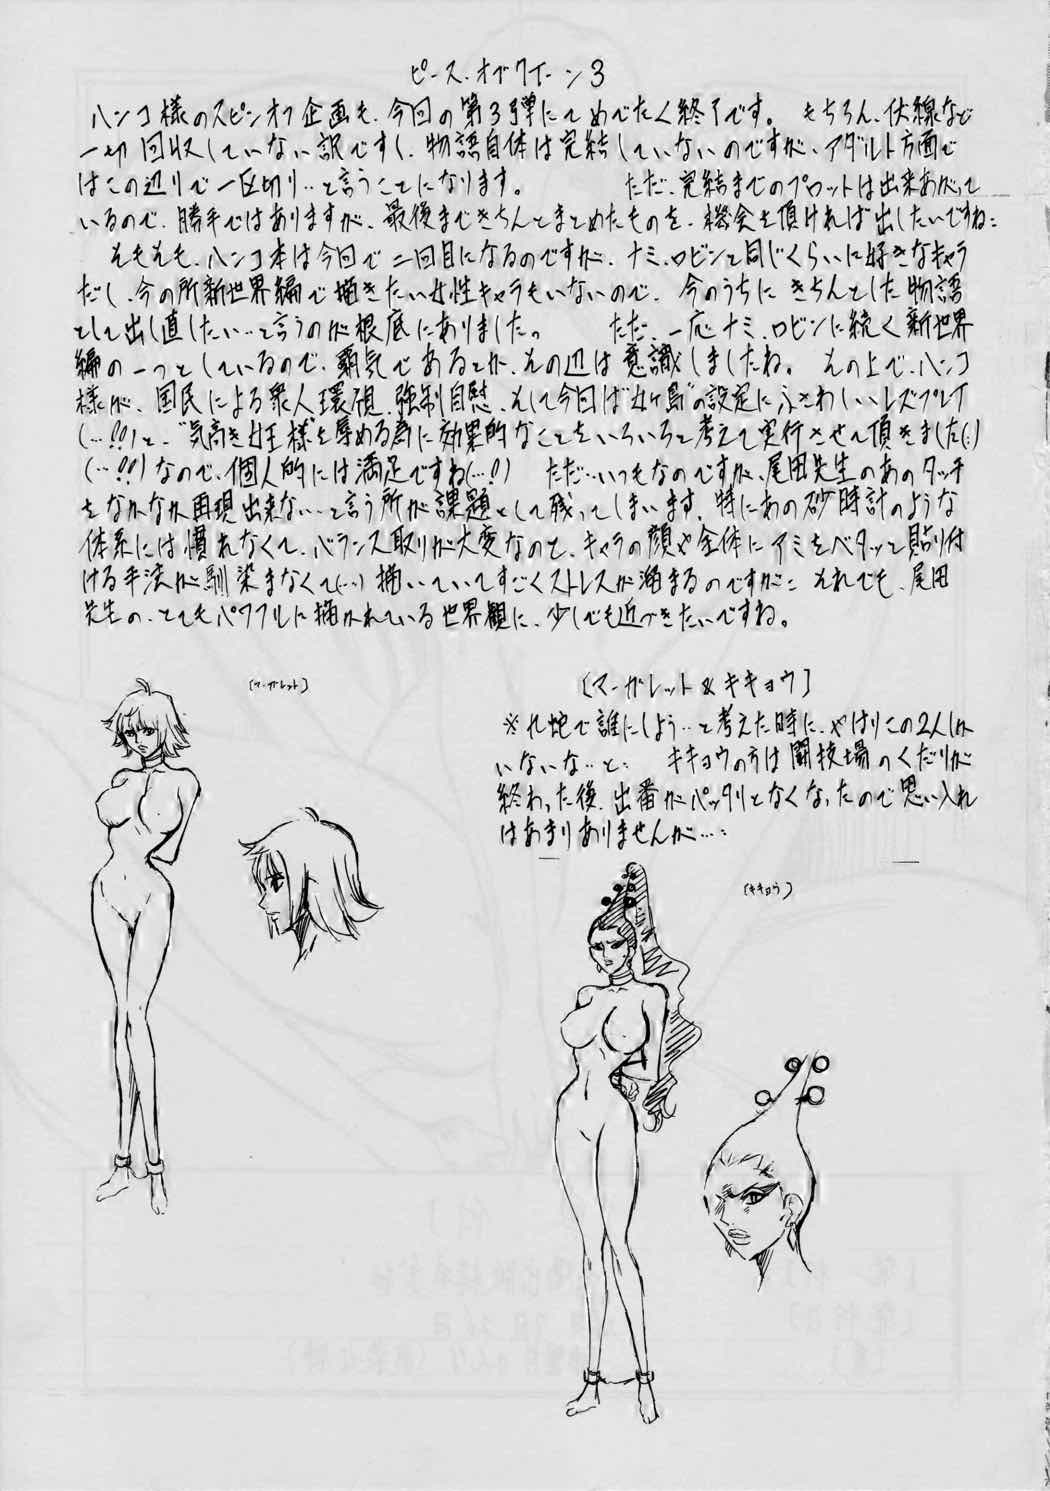 ピース・オブクイーン3
ハンコ様のスピンオフ企画も、今回の第3弾にてめでたく終了です。 もちろん、伏線など
一切回収していない訳ですし、物語自体は完結していないのですが、アダルト方面で
はこの辺りで一区切り…と言うことになります。 ただ、完結までのプロットは出来あがって
いるので、勝手ではありますが、最後まできちんとまとめたものを、機会を頂ければ出したいですね:
そもそも、ハンコ本は今回で二回目になるのですが、ナミ、ロビンと同じくらいに好きなキャラ
だし、今の所新世界編で描きたい女性キャラもいないので、今のうちにきちんとした物語
として出し直したい…と言うのが根底にありました。 ただ、一応ナミ、ロビンに続く新世界
編の一つとしているので、覇気であるとか、その辺は意識しましたね。 その上で、ハンコ
様が、国民による衆人環視、強制自慰、そして今回は"女ヶ島"の設定にふさわしいレズプレイ
(…!!)と、"気高き女王様"を辱める為に効果的なことをいろいろと考えて実行させて頂きました(;)
(…!!)なので、個人的には満足ですね(…!) ただ…いつもなのですが、尾田先生のあのタッチ
をなかなか再現出来ない…と言う所が課題として残ってしまいます。特にあの砂時計のような
体系には慣れなくて、バランス取りが大変なのと、キャラの顔や全体にアミをベタッと貼り付
ける手法が馴染まなくて(…)描いていてすごくストレスが溜まるのですが: それでも、尾田
先生の、とてもパワフルに描かれている世界観に、少しでも近づきたいですね。
[マーガレット]
[マーガレット&キキョウ]
※九蛇で誰にしよう…と考えた時に、やはりこの2人しか
いないな…と: キキョウの方は闘技場のくだりが
終わった後、出番がパッタリとなくなったので思い入れ
はあまりありませんが…:
[キキョウ]